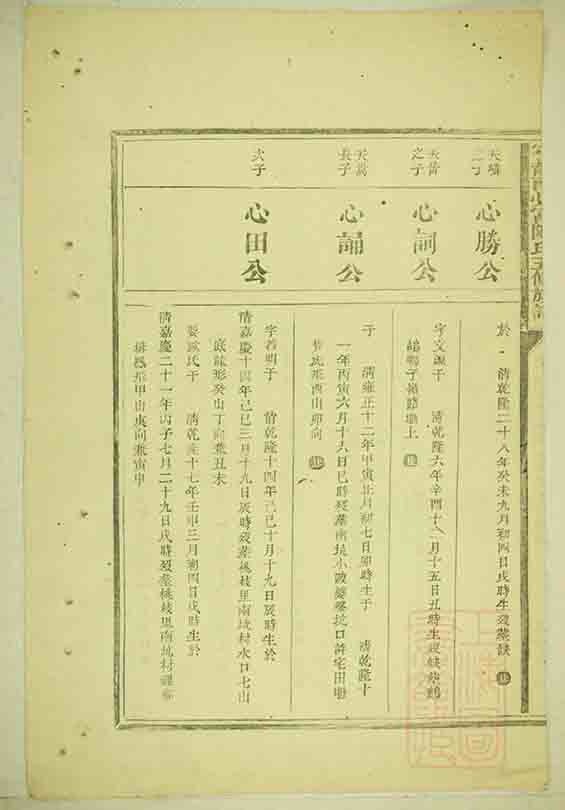 天
之子
心勝公
於 清乾隆二十八年癸未九月初四日戌時生歿葬缺
天
之子
心詞公
字文 于 清乾隆六年辛酉十二月十五日丑時生歿
天
長子
心誦公
于 清雍正十二年甲寅正月初七日卯時生于 清乾隆十
一年丙寅六月十六日巳時歿葬南坑小陂 坑口許宅田
形酉山卯向
次子
心田公
字若明于 清乾隆十四年己巳十月十九日辰時生於
清嘉慶十四年己巳三月十九日辰時歿葬桃枝里南坑村水口七山
形癸山丁向兼丑未
娶 氏于 清乾隆十七年壬申三月初四日戌時生於
清嘉慶二十一年丙子七月二十九日戌時歿葬桃枝里南坑村
形甲山庚向兼寅申